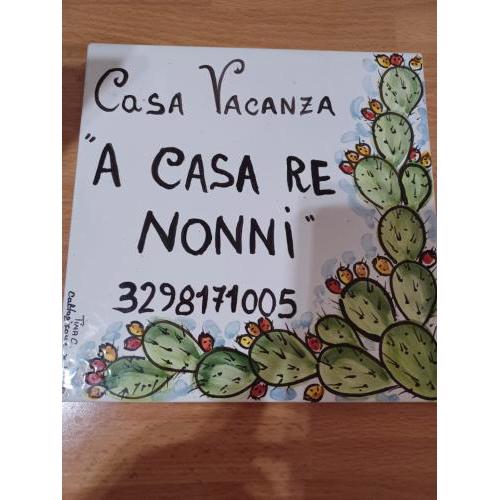 Casa Vacanza
"A CASA RE
NONNi"
3298171005
TINA C.